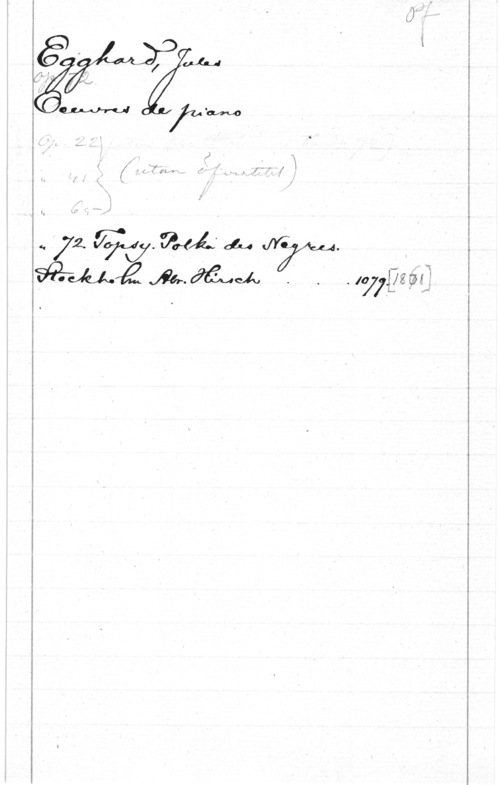 pf
Egghard, Jules
op. 72
Oeuvres de piano
Op. 22
" 41 (utan öfvertitel)
" 65
" 72. Topsy. Polka des Negres.
Stockholm Abr. Hirsch . . . 1079. [1861]